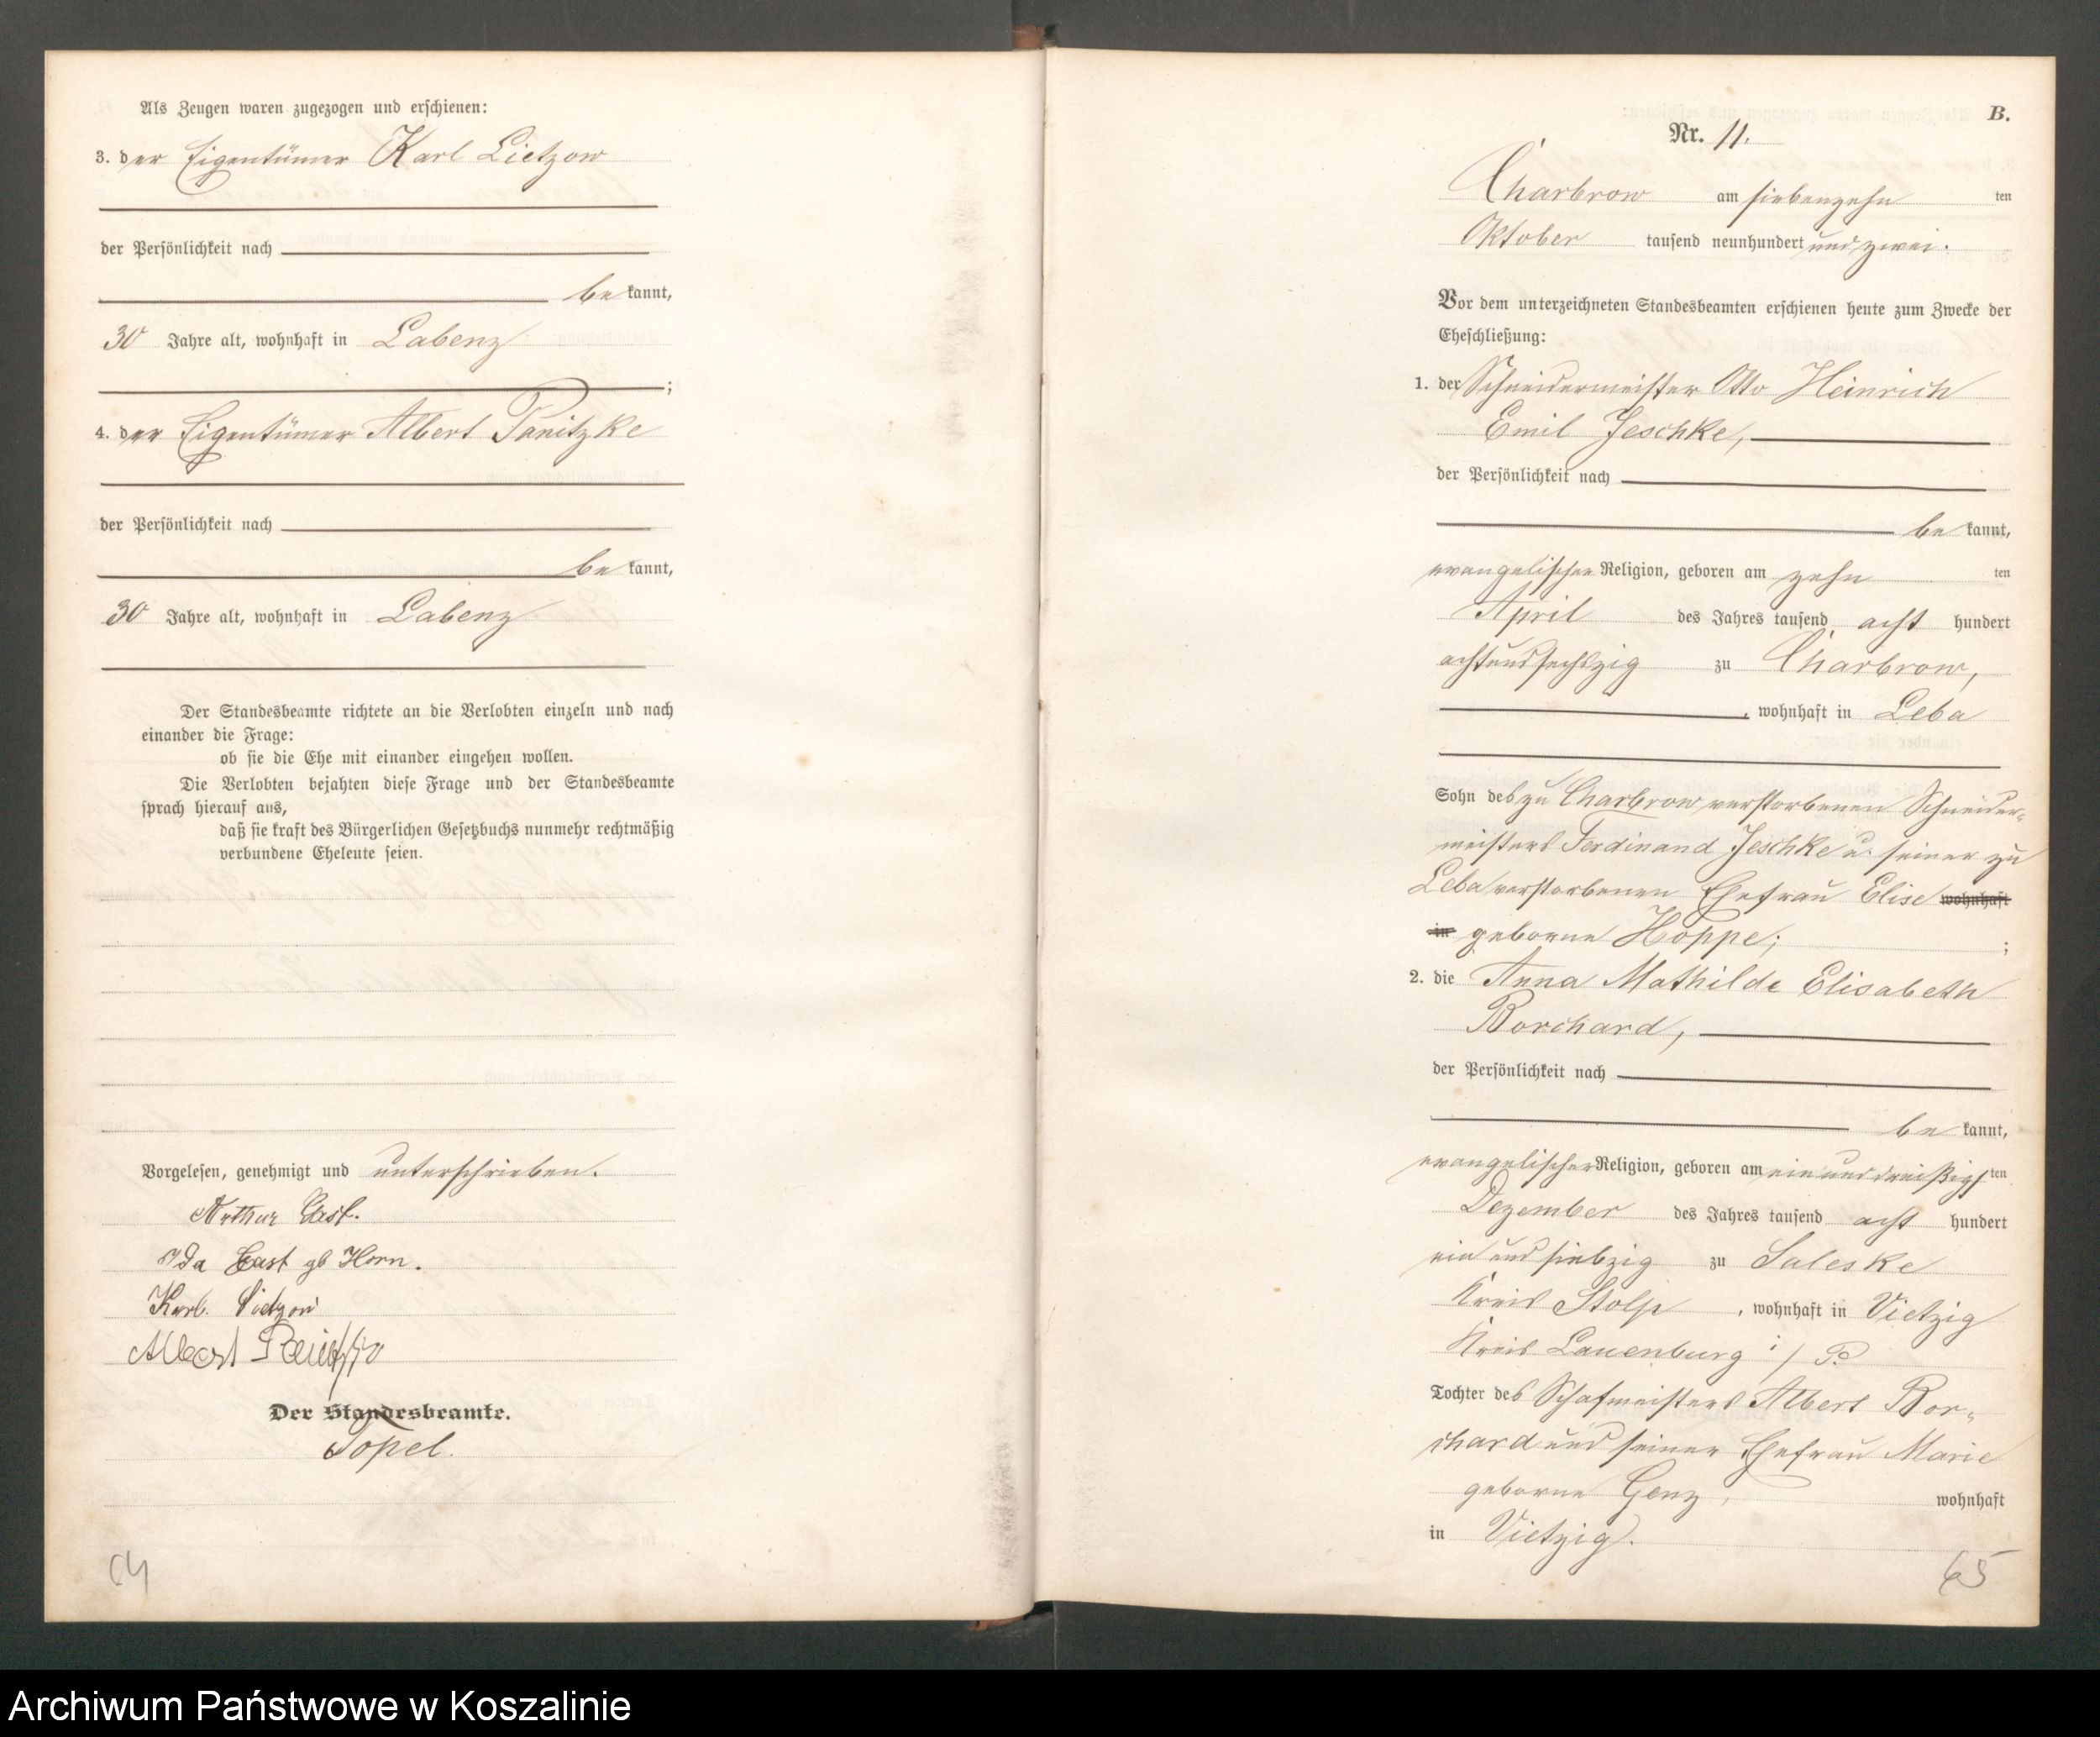 Als Zeugen waren zugezogen und erschienen:
3. der Eigentümer Karl Lietzow
der Persönlichkeit nach
bekannt,
30 Jahre alt, wohnhaft in Labenz
;
4. der Eigentümer Albert Panitzke
der Persönlichkeit nach
bekannt,
30 Jahre alt, wohnhaft in Labenz
Der Standesbeamte richtete an die Verlobten einzeln und nach
einander die Frage:
ob sie die Ehe mit einander eingehen wollen.
Die Verlobten bejahten diese Frage und der Standesbeamte
sprach hierauf aus,
daß sie kraft des Bürgerlichen Gesetzbuchs nunmehr rechtmäßig
verbundene Eheleute seien.
Vorgelesen, genehmigt und unterschrieben.
Arthur
Ida gb Horn.
Karl Lietzow
Albert
Der Standesbeamte.
Topel.
64
B.
Nr. 11.
Charbrow am siebenzehn ten
Oktober tausend neunhundert und zwei.
Vor dem unterzeichneten Standesbeamten erschienen heute zum Zwecke der
Eheschließung:
1. der Schneidermeister Otto Heinrich
Emil Jeschke,
der Persönlichkeit nach
bekannt,
evangelischer Religion, geboren am zehn ten
April des Jahres tausend acht hundert
achtundsechszig zu Charbrow,
, wohnhaft in Leba
Sohn des zu Charbrow verstorbenen Schneider-
meisters Ferdinand Jeschke u. seiner zu
Leba verstorbenen Ehefrau Elise wohnhaft
in geborne Hoppe; ;
2. die Anna Mathilde Elisabeth
Borchard,
der Persönlichkeit nach
bekannt,
evangelischer Religion, geboren am ein und dreißigsten
Dezember des Jahres tausend acht hundert
ein und siebzig zu Saleske
Kreis Stolp, wohnhaft in Vietzig
Kreis Lauenburg i/P.
Tochter des Schafmeisters Albert Bor-
chard und seiner Ehefrau Marie
geborne Genz, wohnhaft
in Vietzig.
65
Archiwum Państwowe w Koszalinie